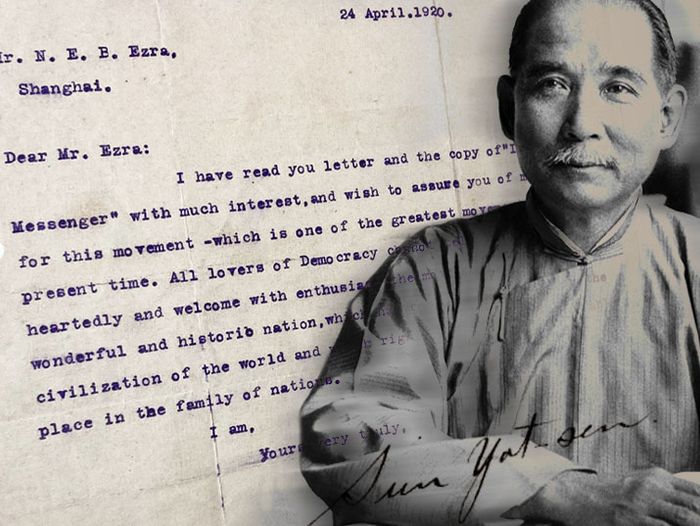 24 April.1920.
Mr. N. E. B. Ezra,
Shanghai.
Dear Mr. Ezra:
I have read you letter and the copy of"I
Messenger" with much interest,and wish to assure you of m
for this movement -which is one of the greatest move
present time. All lovers of Democracy cannot
heartedly and welcome with enthusia the
wonderful and historib nation,which the
civilization of the world and righ
place in the family of nations.
I am,
Yours very truly,
Sun Yat-sen